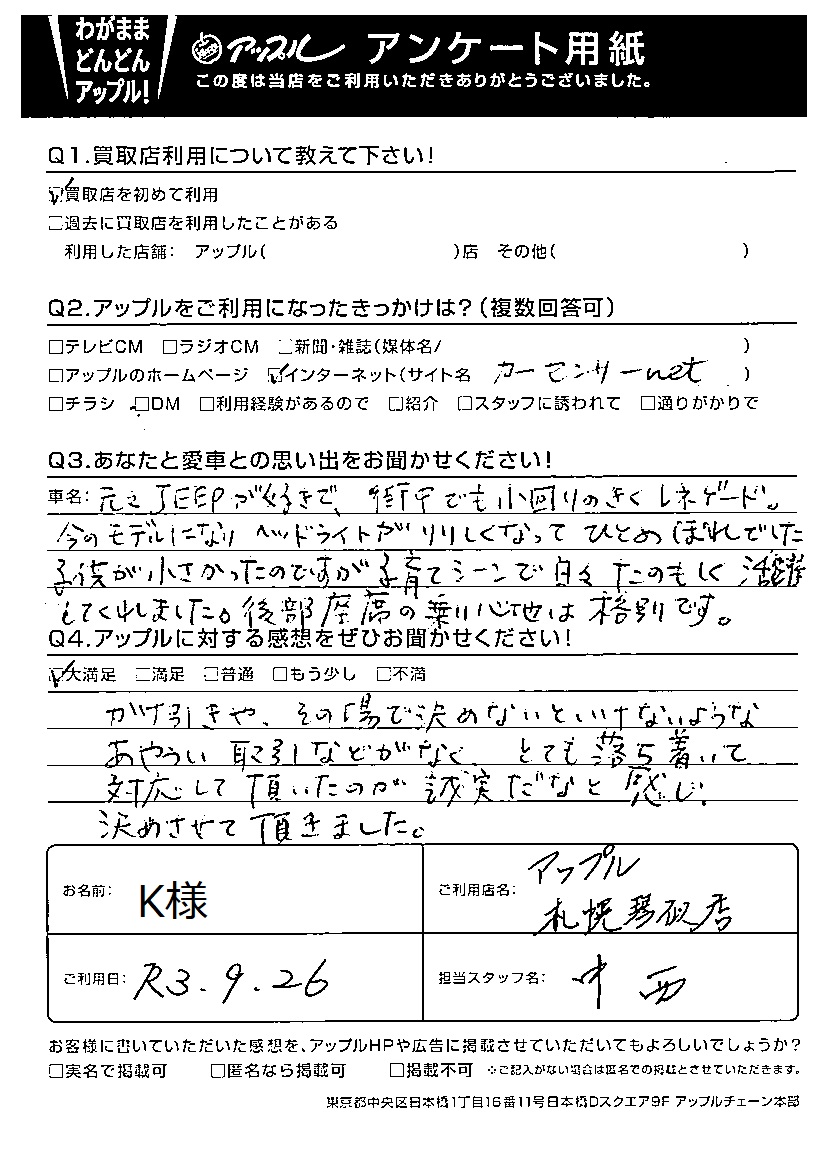 わがまま
どんどん
アップル!
アップル アンケート用紙
この度は当店をご利用いただきありがとうございました。
Q1.買取店利用について教えて下さい!
☑買取店を初めて利用
□過去に買取店を利用したことがある
利用した店舗: アップル( )店 その他( )
Q2.アップルをご利用になったきっかけは?(複数回答可)
□テレビCM □ラジオCM □新聞・雑誌(媒体名/ )
□アップルのホームページ ☑インターネット(サイト名 カーセンサーnet )
□チラシ □DM □利用経験があるので □紹介 □スタッフに誘われて □通りがかりで
Q3.あなたと愛車との思い出をお聞かせください!
車名: 元々JEEPが好きで、街中でも小回りのきくレネゲード。
今のモデルになり ヘッドライトがりりしくなって ひとめぼれでした
子供が小さかったのですが子育てシーンで日々たのもしく活躍
してくれました。後部座席の乗り心地は格別です。
Q4.アップルに対する感想をぜひお聞かせください!
☑大満足 □満足 □普通 □もう少し □不満
かけ引きや、その場で決めないといけないような
あやうい取引などがなく、とても落ち着いて
対応して頂いたのが誠実だなと感じ
決めさせて頂きました。
お名前: K様
ご利用店名: アップル
札幌琴似店
ご利用日: R3.9.26
担当スタッフ名: 中西
お客様に書いていただいた感想を、アップルHPや広告に掲載させていただいてもよろしいでしょうか?
□実名で掲載可 □匿名なら掲載可 □掲載不可 ※ご記入がない場合は匿名での掲載とさせていただきます。
東京都中央区日本橋1丁目16番11号日本橋Dスクエア9F アップルチェーン本部